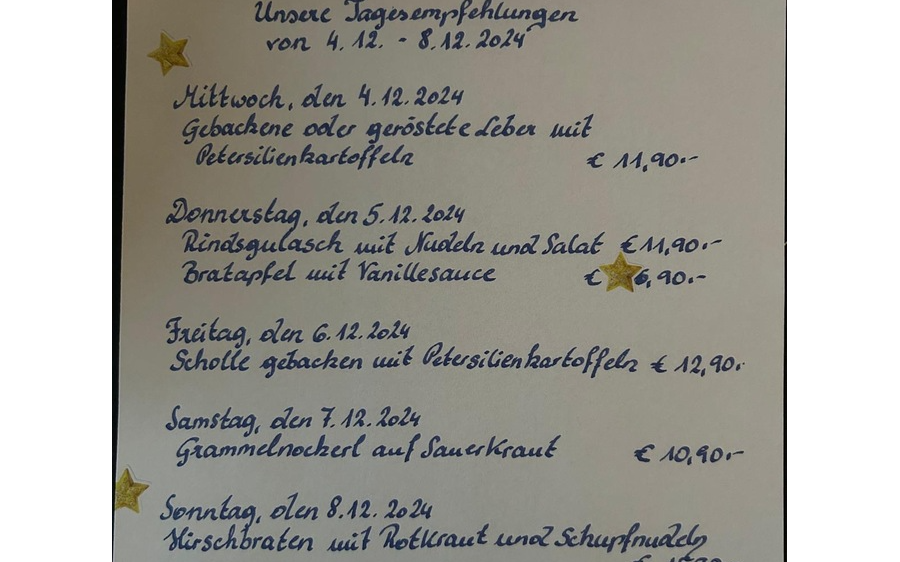 Unsere Tagesempfehlungen
von 4.12. - 8.12.2024
Mittwoch, den 4.12.2024
Gebackene oder geröstete Leber mit
Petersilienkartoffeln € 11,90.-
Donnerstag, den 5.12.2024
Rindsgulasch mit Nudeln und Salat € 11,90.-
Bratapfel mit Vanillesauce € 6,90.-
Freitag, den 6.12.2024
Scholle gebacken mit Petersilienkartoffeln € 12,90.-
Samstag, den 7.12.2024
Grammelnockerl auf Sauerkraut € 10,90.-
Sonntag, den 8.12.2024
Hirschbraten mit Rotkraut und Schupfnudeln
€